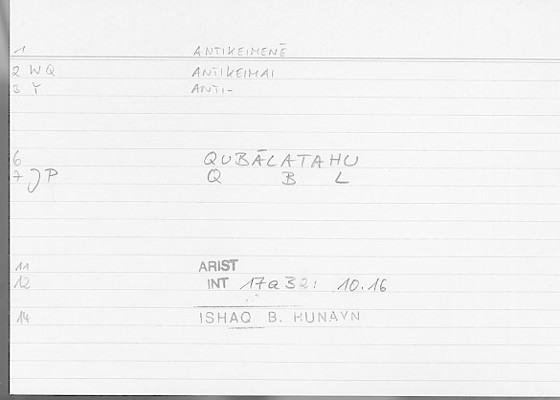 1 ANTIKEIMENĒ
2 WQ ANTIKEIMAI
3 Y ANTI-
6 QUBĀLATAHU
7 JP Q B L
11 ARIST
12 INT 17a32: 10.16
14 ISHAQ B. HUNAYN